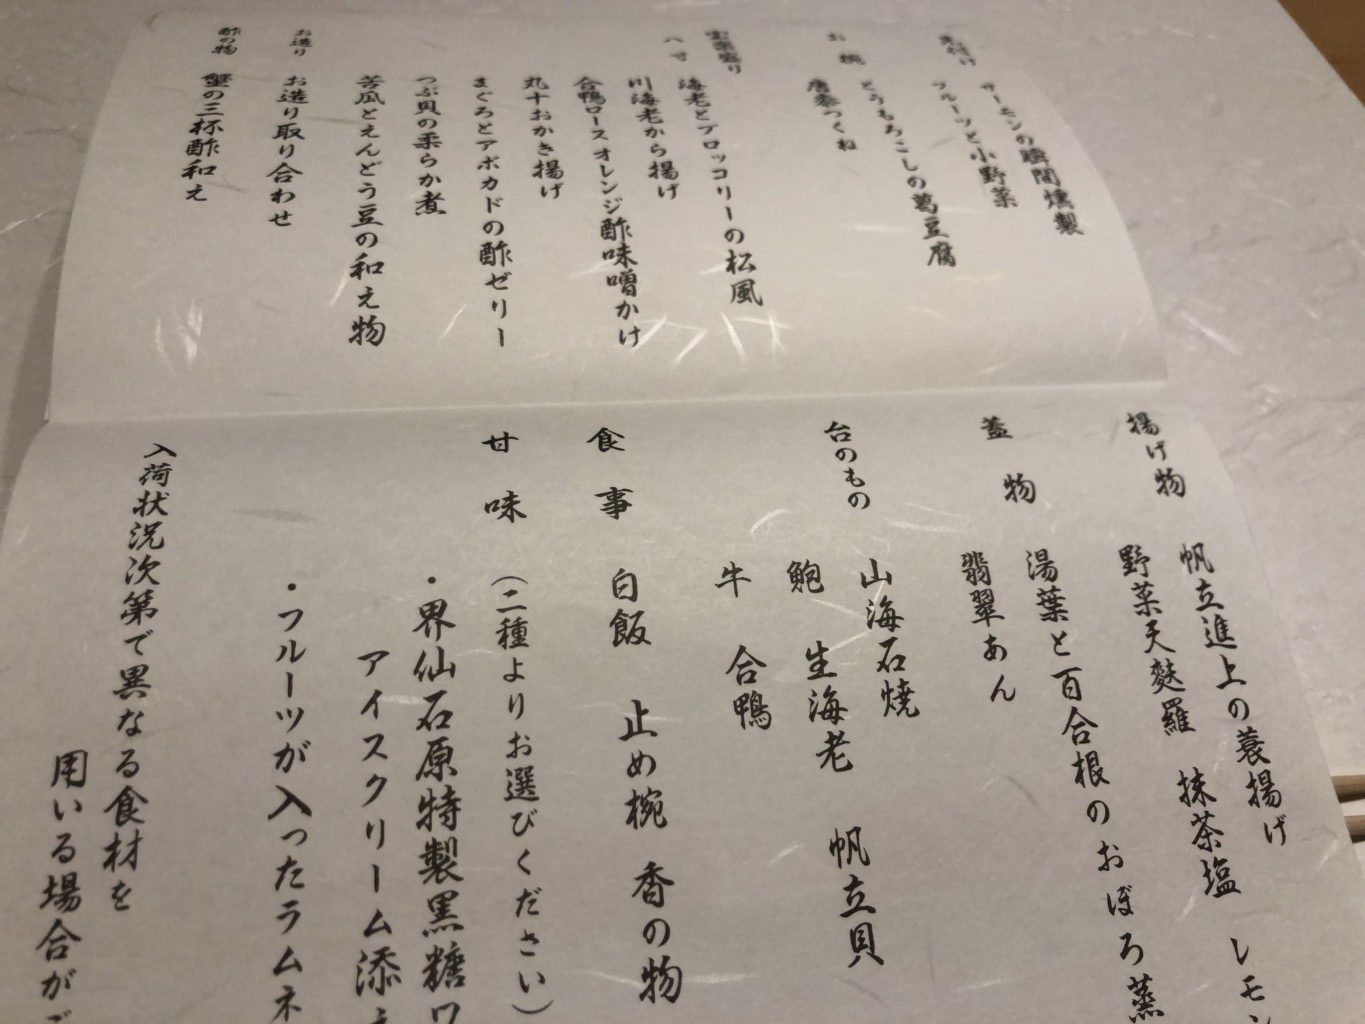 先付け サーモンの瞬間燻製
フルーツと小野菜
お椀 とうもろこしの葛豆腐
つくね
宝楽盛り
八寸 海老とブロッコリーの松風
川海老から揚げ
合鴨ロースオレンジ酢味噌かけ
丸十おかき揚げ
まぐろとアボカドの酢ゼリー
つぶ貝の柔らか煮
苦瓜とえんどう豆の和え物
お造り お造り取り合わせ
酢の物 蟹の三杯酢和え
揚げ物 帆立進上の蓑揚げ
野菜天麩羅 抹茶塩 レモン
蓋物 湯葉と百合根のおぼろ蒸
翡翠あん
台のもの 山海石焼
鮑 生海老 帆立貝
牛 合鴨
食事 白飯 止め椀 香の物
甘味 (二種よりお選びください)
・界仙石原特製黒糖ワ
アイスクリーム添え
・フルーツが入ったラムネ
入荷状況次第で異なる食材を
用いる場合がご